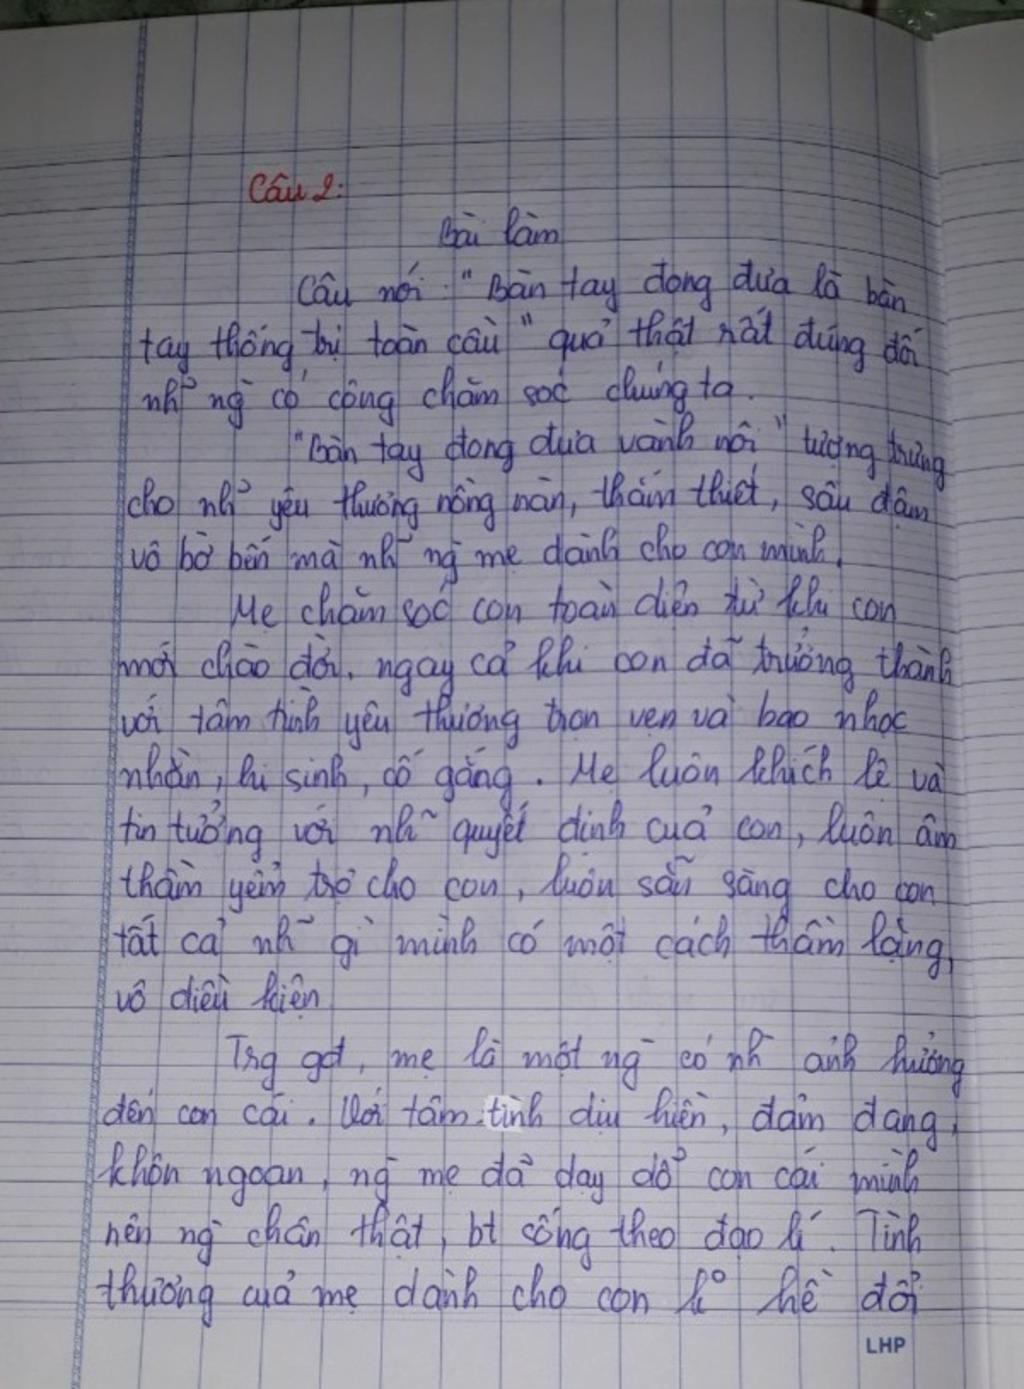 Câu 2:
Bài làm
Câu nói: "Bàn tay đong đưa là bàn
tay thống trị toàn cầu" quả thật rất đúng đối
nh~ ng` có công chăm sóc chúng ta.
"Bàn tay đong đưa vành nôi" tượng trưng
cho nh~ yêu thương nồng nàn, thắm thiết, sâu đậm
vô bờ bến mà nh~ ng` mẹ dành cho con mình.
Mẹ chăm sóc con toàn diện từ khi con
mới chào đời, ngay cả khi con đã trưởng thành
với tâm tình yêu thương trọn vẹn và bao nhọc
nhằn, hi sinh, cố gắng. Mẹ luôn khích lệ và
tin tưởng với nh~ quyết định của con, luôn âm
thầm yểm trợ cho con, luôn sẵn sàng cho con
tất cả nh~ gì mình có một cách thầm lặng,
vô điều kiện
Trg gđ, mẹ là một ng` có nh` ảnh hưởng
đến con cái. Với tâm tình dịu hiền, đảm đang,
khôn ngoan, ng` mẹ đã dạy dỗ con cái mình
nên ng` chân thật, bt sống theo đạo lí. Tình
thương của mẹ dành cho con k° hề đổi
LHP